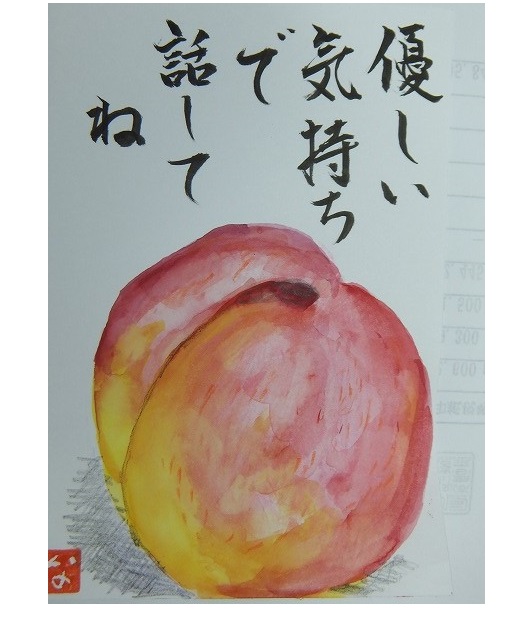 優しい
気持ち
で
話して
ね
な